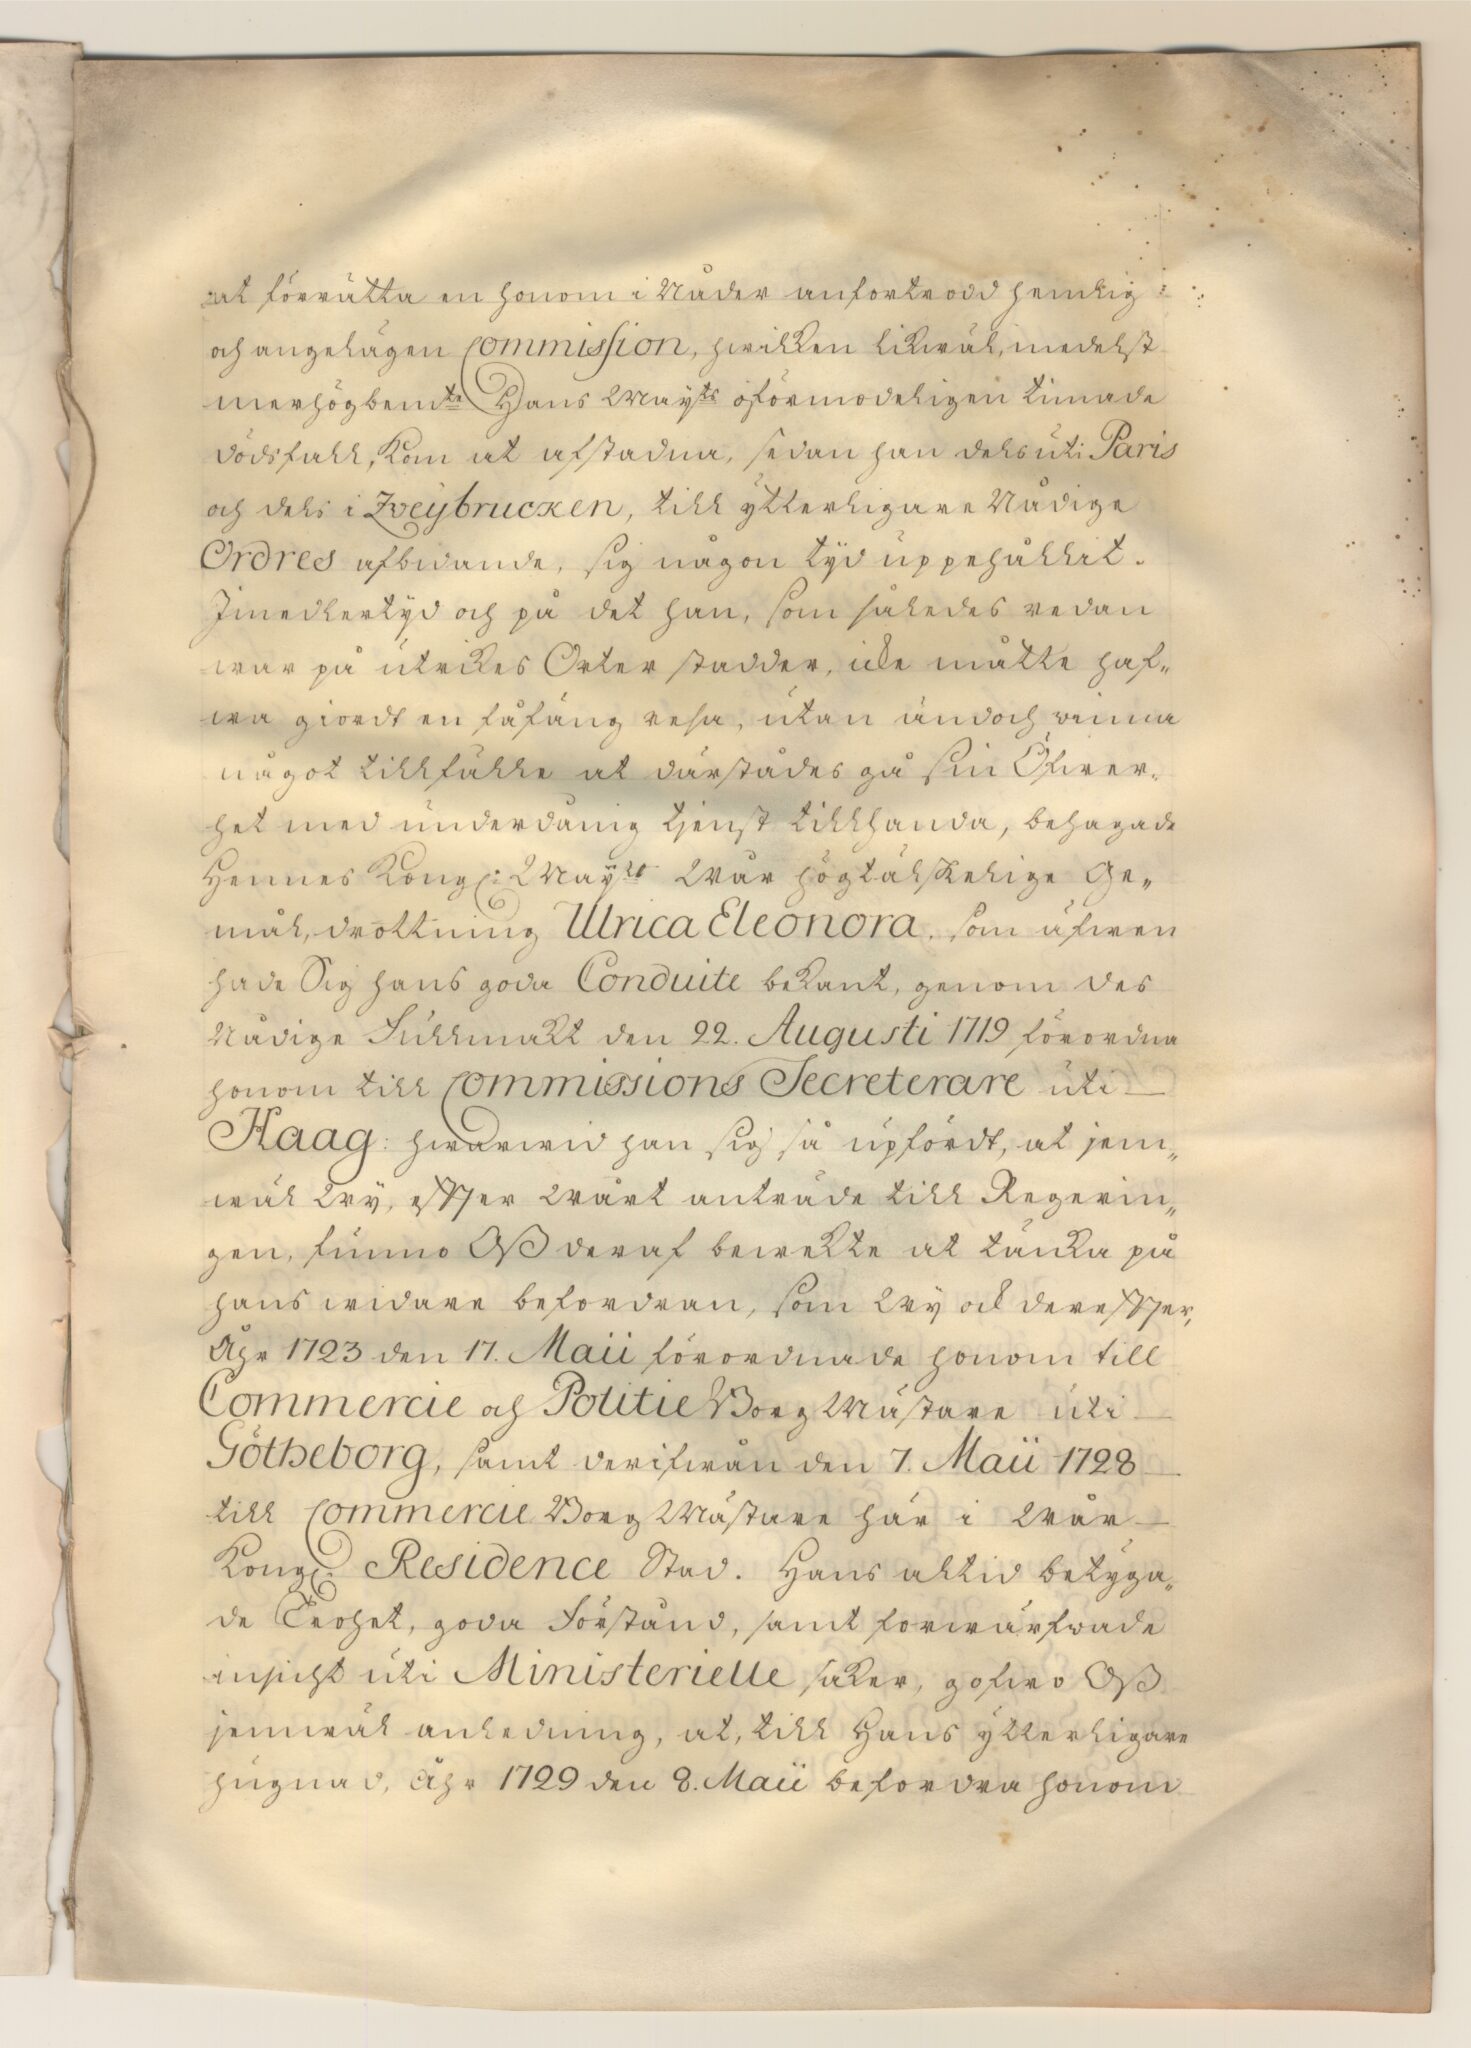 at förrätta en honom i Nåder anförtrodd hemlig
och angelägen Commission, hwilken likwäl, medelst
merhögbemte Hans Mayts oförmodeligen timade
dödsfall, kom at afstadna, sedan han dels uti Paris
och dels i Zveybrucken, till ytterligare Nådige
Ordres afbidande, sig någon tyd uppehållit.
Imedlertyd och på det han, som således redan
war på utrikes Orter stadder, icke måtte haf„
wa giordt en fåfäng resa, utan ändoch winna
något tillfälle at därstädes gå sin Öfwer„
het med underdånig tjenst tillhanda, behagade
Hennes Kongl: Mayt Wår högtälskelige Ge„
mål, drottning Ulrica Eleonora, som äfwen
hade Sig hans goda Conduite bekant, genom des
Nådige Fullmakt den 22. Augusti 1719 förordna
honom till Commissions Secreterare uti
Haag: hwarwid han sig så upfördt, at jem„
wäl Wy, efter Wårt anträde till Regerin„
gen, funno Oß deraf bewekte at tänka på
hans widare befordran, som Wy ock derefter,
Åhr 1723 den 17. Maii förordnade honom till
Commercie och Politie Borg Mästare uti
Götheborg, samt derifrån den 7. Maii 1728
till Commercie Borg Mästare här i Wår
Kongl. Residence Stad. Hans altid betyga„
de Trohet, goda Förstånd, samt förwärfwade
insicht uti Ministerielle saker, gofwo Oß
jemwäl anledning, at, till Hans ytterligare
hugnad, Åhr 1729 den 8. Maii befordra honom